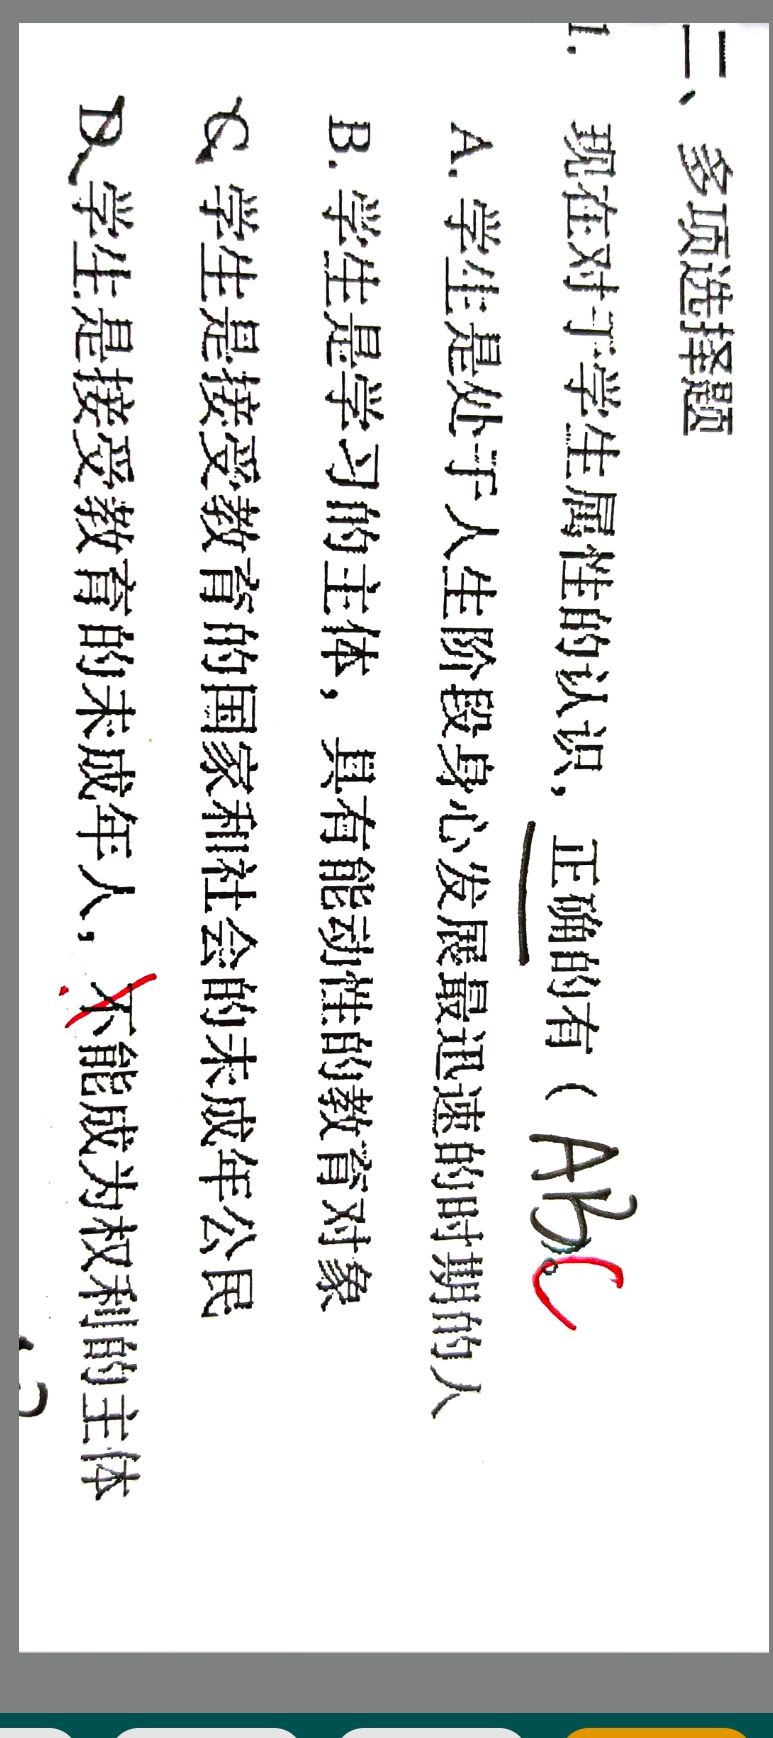 二、多项选择题
1. 现在对于学生属性的认识，正确的有（ABC
A. 学生是处于人生阶段身心发展最迅速的时期的人
B. 学生是学习的主体，具有能动性的教育对象
C 学生是接受教育的国家和社会的未成年公民
D、学生是接受教育的未成年人，不能成为权利的主体